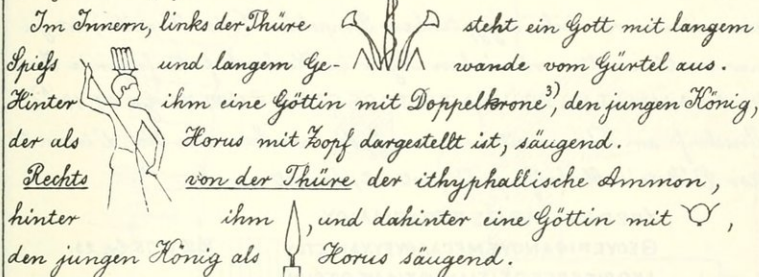 Im Innern, links der Thüre steht ein Gott mit langem
Spieſs und langem Ge- wande vom Gürtel aus.
Hinter ihm eine Göttin mit Doppelkrone³⁾, den jungen König,
der als Horus mit Zopf dargestellt ist, säugend.
Rechts von der Thüre der ithyphallische Ammon,
hinter ihm , und dahinter eine Göttin mit ,
den jungen König als Horus säugend.